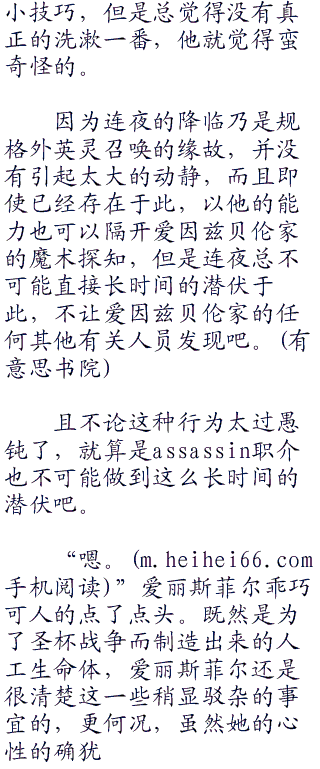 小技巧，但是总觉得没有真
正的洗漱一番，他就觉得蛮
奇怪的。
因为连夜的降临乃是规
格外英灵召唤的缘故，并没
有引起太大的动静，而且即
使已经存在于此，以他的能
力也可以隔开爱因兹贝伦家
的魔术探知，但是连夜总不
可能直接长时间的潜伏于
此，不让爱因兹贝伦家的任
何其他有关人员发现吧。（有
意思书院）
且不论这种行为太过愚
钝了，就算是assassin职介
也不可能做到这么长时间的
潜伏吧。
“嗯。（m.heihei66.com
手机阅读）”爱丽斯菲尔乖巧
可人的点了点头。既然是为
了圣杯战争而制造出来的人
工生命体，爱丽斯菲尔还是
很清楚这一些稍显驳杂的事
宜的，更何况，虽然她的心
性的确犹